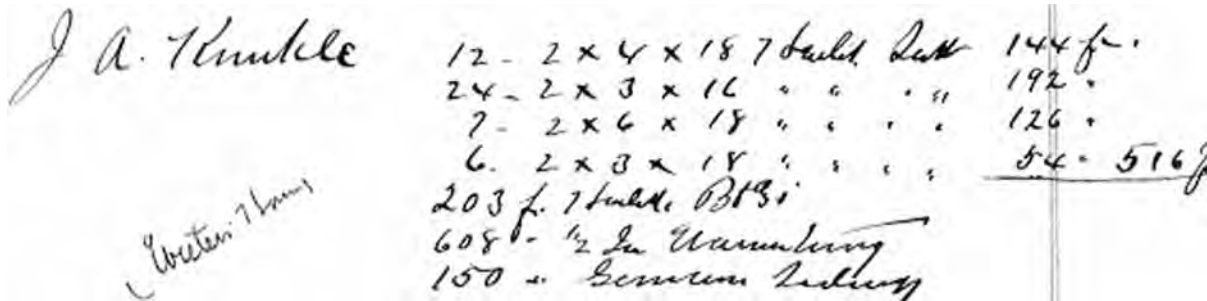 J A. Kunkle
12 - 2 x 4 x 18 Hemlock 144 ft.
24 - 2 x 3 x 16 " " " " 192 "
7 - 2 x 6 x 18 " " " " 126 "
6 - 2 x 3 x 18 " " " " 54 " 516 f
203 f. Hemlock Bds
608 " 1/2 In Wainscoting
150 " German Siding